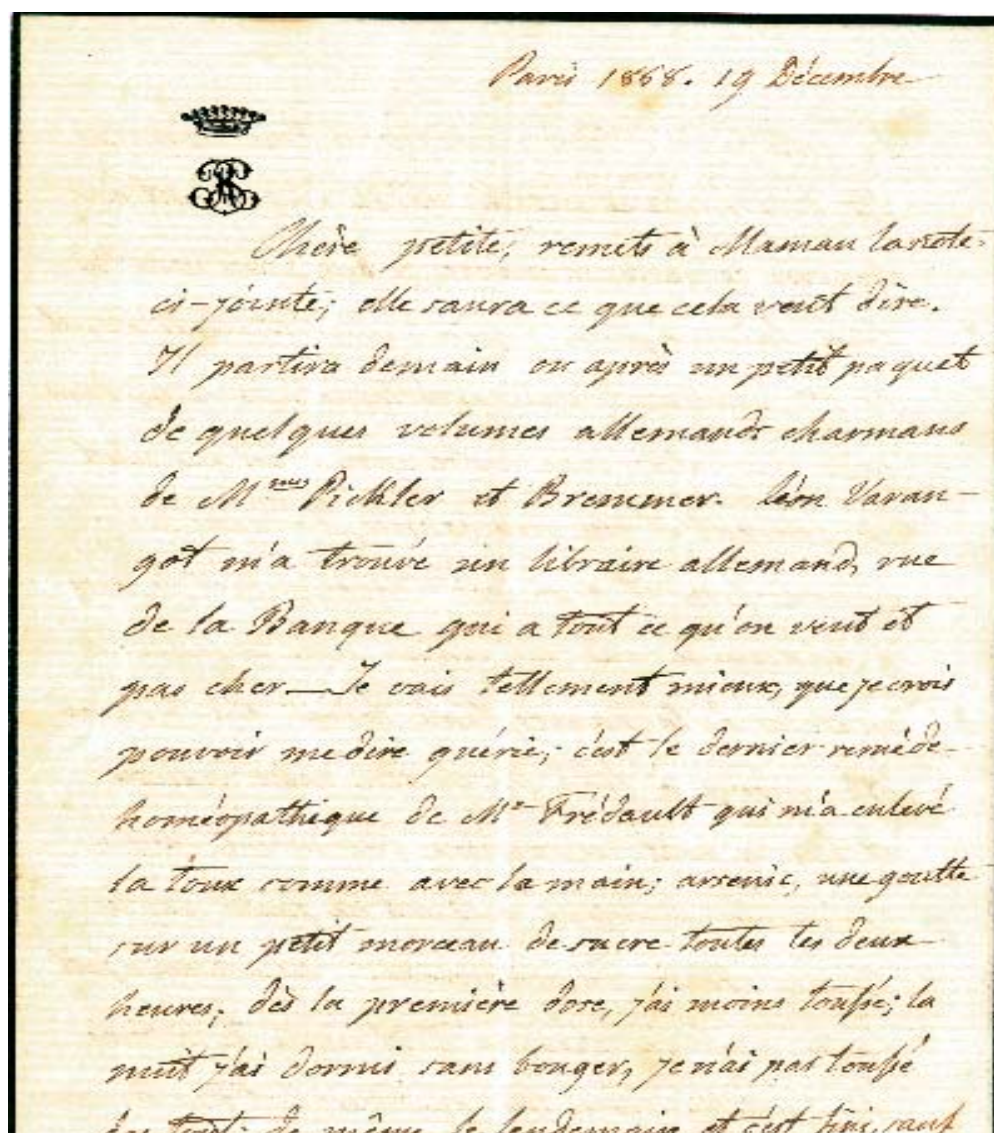 Paris 1868. 19 Décembre
Chère petite, remets à Maman la note
ci-jointe; elle saura ce que cela veut dire.
Il partira demain ou après un petit paquet
de quelques volumes allemands charmans
de M^mes Pichler et Bremmer. Léon Varan-
got m'a trouvé un libraire allemand, rue
de la Banque qui a tout ce qu'on veut et
pas cher — Je vais tellement mieux, que je crois
pouvoir me dire guérie; c'est le dernier remède
homéopathique de M^r Frédault qui m'a enlevé
la toux comme avec la main; arsenic, une goutte
sur un petit morceau de sucre toutes les deux
heures; dès la première dose, j'ai moins toussé; la
nuit j'ai dormi sans bouger, je n'ai pas toussé
du tout; de même le lendemain et c'est fini, sauf